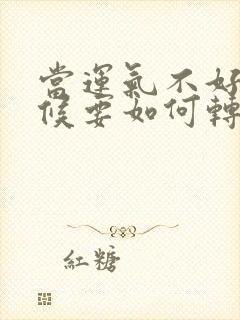 當運氣不好
候要如何轉
紅糖